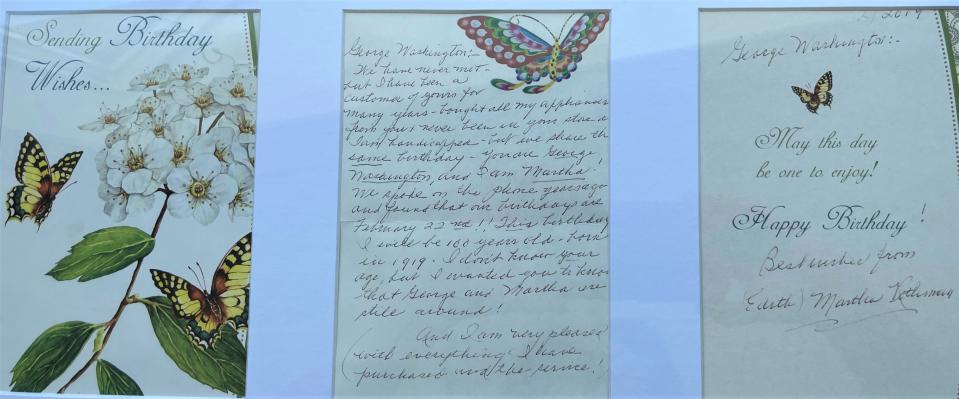 Sending Birthday
Wishes...
George Washington:-
We have never met-
but I have been a
customer of yours for
many years - bought all my appliances
from you & never been in your store
I am handicapped - but we share the
same birthday - You are George
Washington, and I am Martha!
We spoke on the phone years ago
and found that our birthdays are
February 22nd!! This birthday
I will be 100 years old - born
in 1919. I don't know your
age, but I wanted you to know
that George and Martha are
still around!
And I am very pleased
(with everything I have
purchased and the service!
2019
George Washington:-
May this day
be one to enjoy!
Happy Birthday!
Best wishes from
(Edith) Martha